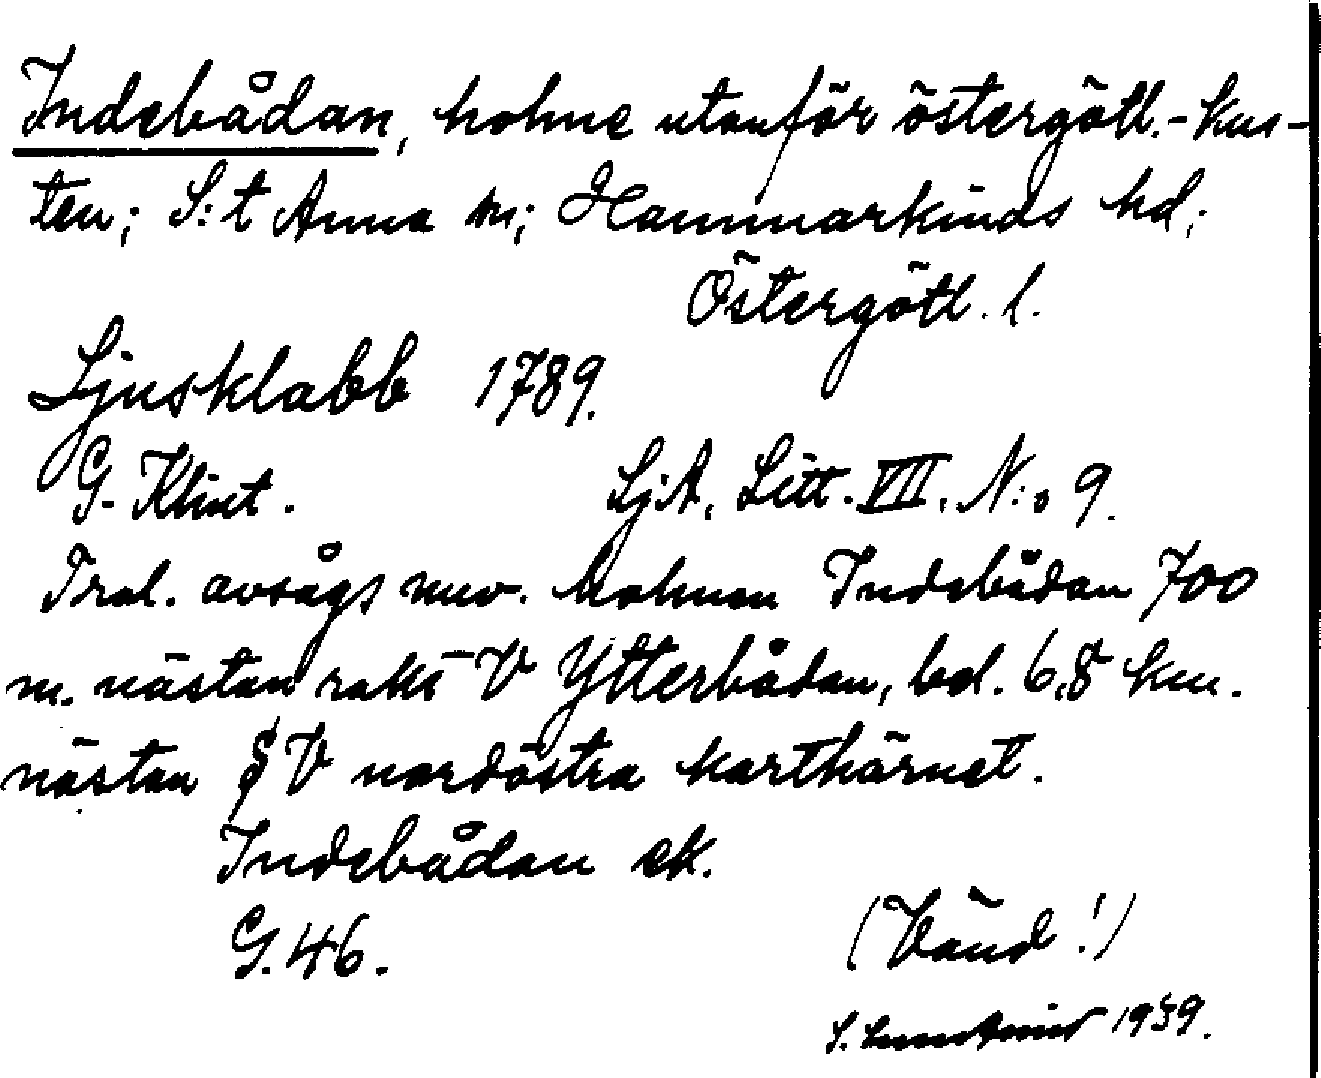 Indebådan, holme utanför östergötl.-kus-
ten; S:t Anna sn; Hammarkinds hd;
Östergötl. l.
Ljusklabb 1789.
G. Klint. SjA, Litt. VII. N:o 9.
Trol. avsågs nuv. holmen Indebådan 700
m. nästan rakt V Ytterbådan, bel. 6,8 km.
nästan V nordöstra karthörnet.
Indebådan ek.
G. 46.
(Vänd!)
S. 1939.